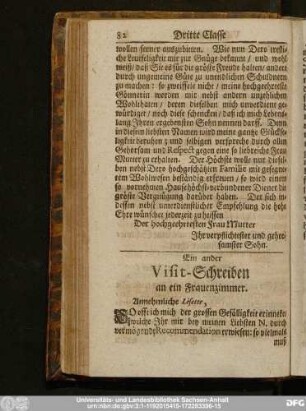 82 Dritte Classe
wollen ferner ausgebitten. Wie nun Dero welt-
liche Leutseligkeit mir zur Gnüge bekannt / und wohl
weiß / daß Sie es für die gröste Freude halten / andere
durch ungemeine Güte zu unendlichen Schuldnern
zu machen: so zweifele nicht / meine hochgeehrteste
Gönnerin werden mir nebst andern ungehlichen
Wohlthaten / deren dieselben mich unverdient ge-
würdiget / mich diese schencken / daß ich mich lebens-
lang Ihren ergebensten Sohn nennen darff. Denn
in diesem liebsten Namen wird meine gantze Glückse-
ligkeit beruhen / und selbigen verspreche durch allen
Gehorsam und Respect gegen eine so liebreiche Frau
Mutter zu erhalten. Der Höchste wolle nur diesel-
ben nebst Dero hochgeschätzten Familie mit gesegne-
tem Wohlwesen beständig erfreuen / so wird einem
so vornehmen Hause höchst-verbundener Diener die
gröste Vergnügung darüber haben. Der sich in-
dessen nebst unverdienstlicher Empfehlung die hohe
Ehre wünschet jederzeit zu heissen
Der hochgeehrtesten Frau Mutter
Ihr verpflichtester und gehor-
samster Sohn.
Ein ander
Visit-Schreiben
an ein Frauenzimmer.
Annehmliche Lisette,
SO offt ich mich der grossen Gefälligkeit erinnere /
welche Ihr mir bey meinen Liebsten N. durch
vermögende Recommendation erwiesen: so vielmals
muß
Universitäts- und Landesbibliothek Sachsen-Anhalt
urn:nbn:de:gbv:3:1-1192015415-172283396-15
DFG